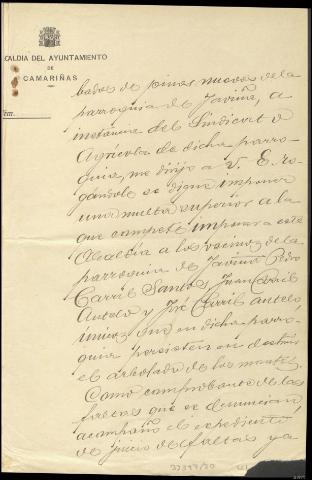 ALCALDIA DEL AYUNTAMIENTO
DE
CAMARIÑAS
Núm.
bados de pinos nuevos de la
parroquia de Javiña, a
instancia del Sindicato
Agrícola de dicha parro-
quia, me dirijo a V. E. ro-
gándole se digne imponer
una multa superior a la
que compete imponer a esta
Alcaldía a los vecinos de la
parroquia de Javiña Pedro
Carril Santos, Juan Carril
Antelo y José Carril Antelo
únicos que en dicha parro-
quia persisten en destruir
el arbolado de los montes.
Como comprobante de las
faltas que se denuncian,
acompaño el expediente
de juicio de faltas ya